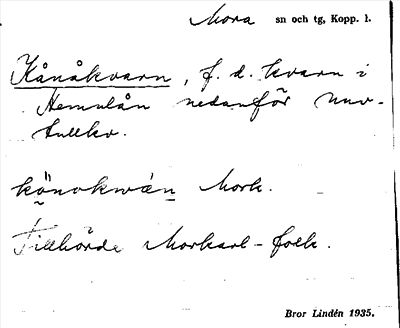 Mora sn och tg, Kopp. l.
Kånåkvarn, f. d. kvarn i
Hemulån nedanför nuv.
tullkv.
könokwán Mork.
Tillhörde Morkarl-folk.
Bror Lindén 1935.